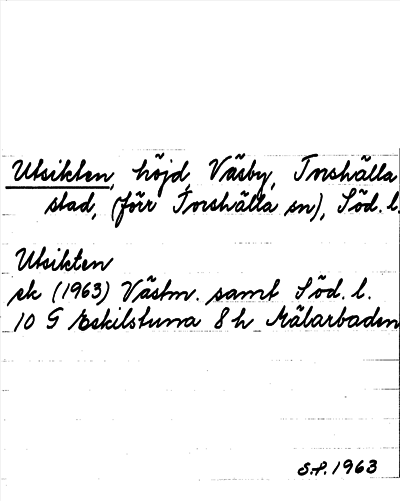 Utsikten, höjd, Väsby, Torshälla
stad, (förr Torshälla sn), Söd. l.
Utsikten
ek (1963) Västm. samt Söd. l.
10 G Eskilstuna 8 h Mälarbaden
S.P. 1963